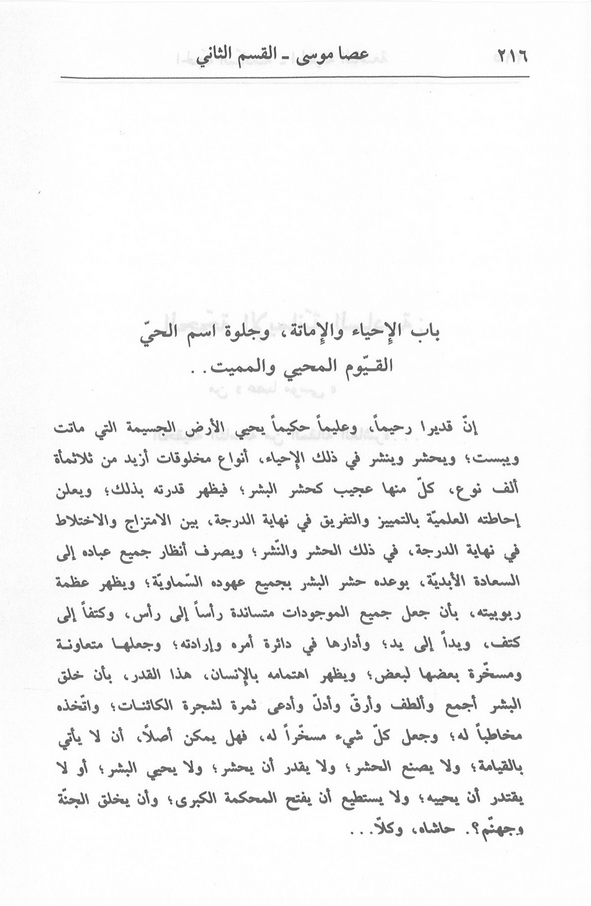 عصا موسى ـ القسم الثاني ٢١٦
باب الإحياء والإماتة، وجلوة اسم الحيّ
القيّوم المحيي والمميت..
إنّ قديرا رحيماً، وعليماً حكيماً يحيي الأرض الجسيمة التي ماتت
ويبست؛ ويحشر وينشر في ذلك الإحياء، أنواع مخلوقات أزيد من ثلاثمأة
ألف نوع، كلّ منها عجيب كحشر البشر؛ فيظهر قدرته بذلك؛ ويعلن
إحاطته العلميّة بالتمييز والتفريق في نهاية الدرجة، بين الامتزاج والاختلاط
في نهاية الدرجة، في ذلك الحشر والنّشر؛ ويصرف أنظار جميع عباده إلى
السعادة الأبديّة، بوعده حشر البشر بجميع عهوده السّماويّة؛ ويظهر عظمة
ربوبيته، بأن جعل جميع الموجودات متساندة رأساً إلى رأس، وكتفاً إلى
كتف، ويداً إلى يد؛ وأدارها في دائرة أمره وإرادته؛ وجعلها متعاونة
ومسخّرة بعضها لبعض؛ ويظهر اهتمامه بالإنسان، هذا القدر، بأن خلق
البشر أجمع وألطف وأرقّ وأدلّ وأدعى ثمرة لشجرة الكائنات؛ واتّخذه
مخاطباً له؛ وجعل كلّ شيء مسخّراً له، فهل يمكن أصلاً، أن لا يأتي
بالقيامة؛ ولا يصنع الحشر؛ ولا يقدر أن يحشر؛ ولا يحيي البشر؛ أو لا
يقتدر أن يحييه؛ ولا يستطيع أن يفتح المحكمة الكبرى؛ وأن يخلق الجنّة
وجهنّم؟. حاشاه، وكلّا...